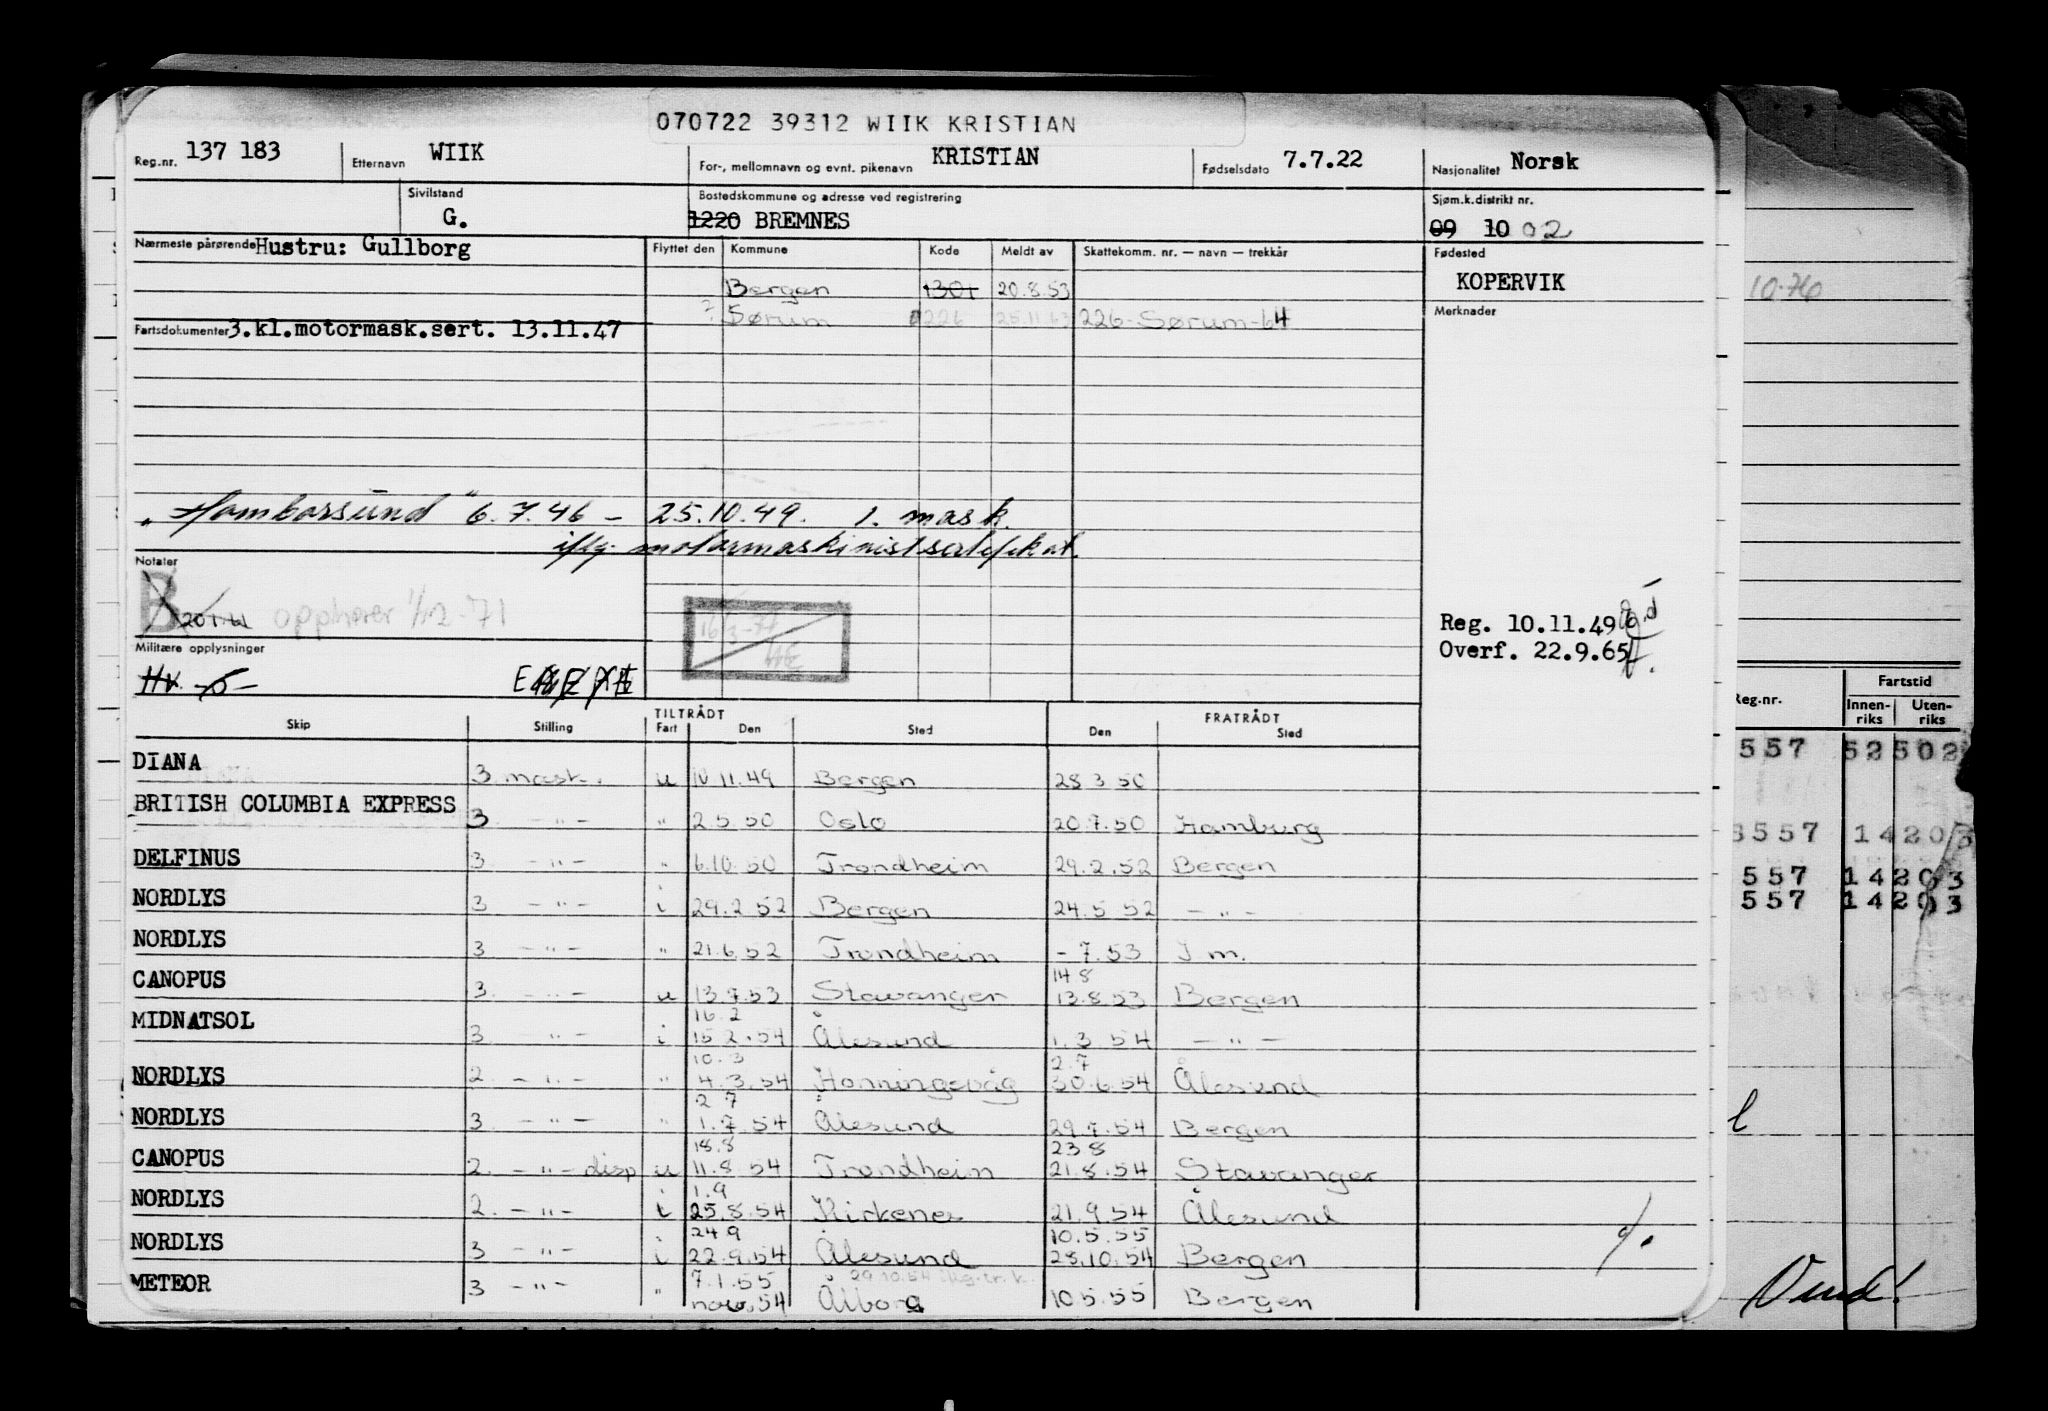 070722 39312 WIIK KRISTIAN
Reg.nr. 137 183 Etternavn WIIK For-, mellomnavn og evnt. pikenavn KRISTIAN Fødselsdato 7.7.22 Nasjonalitet Norsk
Sivilstand G. Bostedskommune og adresse ved registrering 1220 BREMNES Sjøm.k.distrikt nr. 09 10 02
Nærmeste pårørende Hustru: Gullborg Flyttet den Kommune Kode Meldt av Skattekomm. nr. — navn — trekkår Fødested
KOPERVIK
Bergen 1301 20.8.53
10-76
? Sørum 226 25.11.63 226-Sørum-64 Merknader
Fartsdokumenter 3.kl.motormask.sert. 13.11.47
6.7.46 – 25.10.49. 1. mask.
iflg. motormaskinistsertifikat.
Notater
B opphører 1/12-71
Reg. 10.11.49
Militære opplysninger Overf. 22.9.65
HV
Skip Stilling TILTRÅDT Fart Den Sted FRATRÅDT Den Sted
Reg.nr. Fartstid Innen-riks Uten-riks
DIANA 3 mask. u 10.11.49 Bergen 28.3.50
557 52502
BRITISH COLUMBIA EXPRESS 3 - " - " 2.5.50 Oslo 20.7.50 Hamburg
557 14203
DELFINUS 3 - " - " 6.10.50 Trondheim 29.2.52 Bergen
557 14203
NORDLYS 3 - " - i 29.2.52 Bergen 24.5.52 - " -
557 14203
NORDLYS 3 - " - " 21.6.52 Trondheim - 7.53 I m.
14 8
CANOPUS 3. - " - u 13.7.53 Stavanger 13.8.53 Bergen
16.2
MIDNATSOL 3 - " - i 15.2.54 Ålesund 1.3.54 - " -
10.3 2.7
NORDLYS 2. - " - " 4.3.54 Honningsvåg 30.6.54 Ålesund
2 7
NORDLYS 3. - " - " 1.7.54 Ålesund 29.7.54 Bergen
18.8 23 8
CANOPUS 2. - " - disp u 11.8.54 Trondheim 21.8.54 Stavanger
1.9
NORDLYS 2. - " - i 25.8.54 Kirkenes 21.9.54 Ålesund
24 9 10.5.55
NORDLYS 3 - " - i 22.9.54 Ålesund 28.10.54 Bergen
7.1.55 29.10.54
METEOR 3 - " - " nov.54 Ålborg 10.5.55 Bergen
Vend!